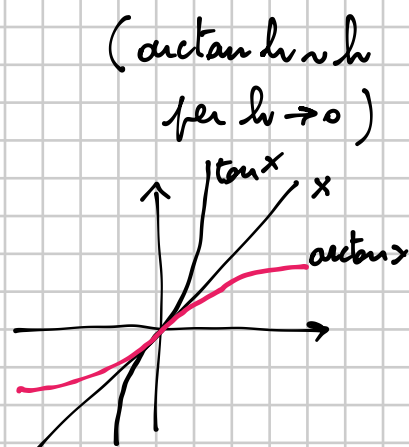 (arctan h ~ h
per h → 0)
tan x
x
arctan x